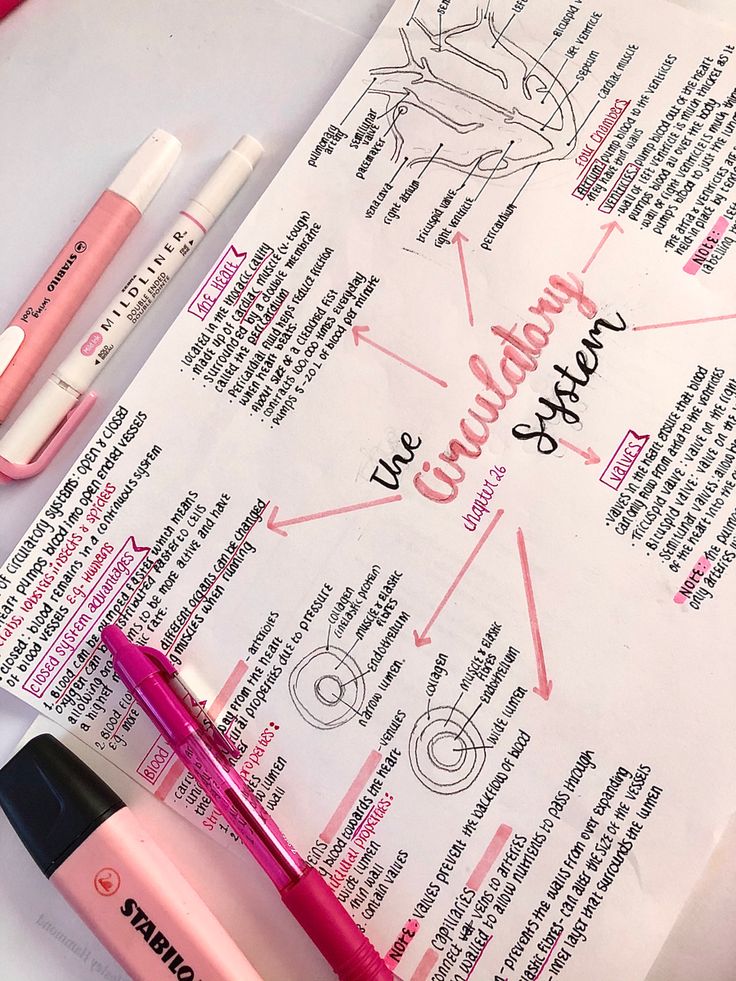 left
bicuspid v
left ventricle
septum
cardiac muscle
pulmonary artery
semilunar valve
pacemaker
vena cava
right atrium
tricuspid valve
right ventricle
pericardium
four chambers
Atrium: pump blood to the ventricles
they have thin walls
ventricles: pump blood out of the heart
· wall of left ventricle is much thicker as it
pumps blood all over the body
wall of right ventricle is much thin
pumps blood to just the lun
· the atria & ventricles are
NOTE:
labelling
The Heart
· located in the thoracic cavity
· made up of cardiac muscle (v. tough)
· surrounded by a double membrane
called the pericardium
· Pericardial fluid helps reduce friction
when heart beats
· About size of a clenched fist
· contracts 100,000 times everyday
· pumps 5-20L of blood per minute
The
Circulatory
System
chapter 26
Valves
· valves in the heart ensure that blood
can only flow from atria to the ventricles
· Tricuspid valve: valve on the
· Bicuspid valve: valve on the
· Semilunar valves allow
of the heart into the
NOTE: The pu
only arteries
of circulatory systems: open & closed
heart pumps blood into open ended vessels
crabs, lobsters insects & spiders
closed: blood remains in a continuous system
of blood vessels e.g. Humans
closed system advantages
1. Blood can be pumped faster which means
oxygen can distributed faster to cells
allowing to be more active and have
a higher rate.
2. Blood flo different organs can be changed
e.g. more muscles when running
Blood
- arteries
away from the heart
properties due to pressure
properties:
lumen
wall
collagen
(inelastic protein)
muscle & elastic
fibres
Endothelium
narrow lumen
collagen
muscle & elastic
fibres
Endothelium
wide lumen
- venules
blood towards the heart
structural properties:
wide lumen
thin wall
contain valves
NOTE: valves prevent the backflow of blood
capillaries
connect veins to arteries
walled to allow nutrients to pass through
- prevents the walls from over expanding
elastic fibres - can alter the size of the vessels
- inner layer that surrounds the lumen
STABILO
swing
cool
MILDLINER
DOUBLE ENDED
DOUBLE POINTS
STABILO